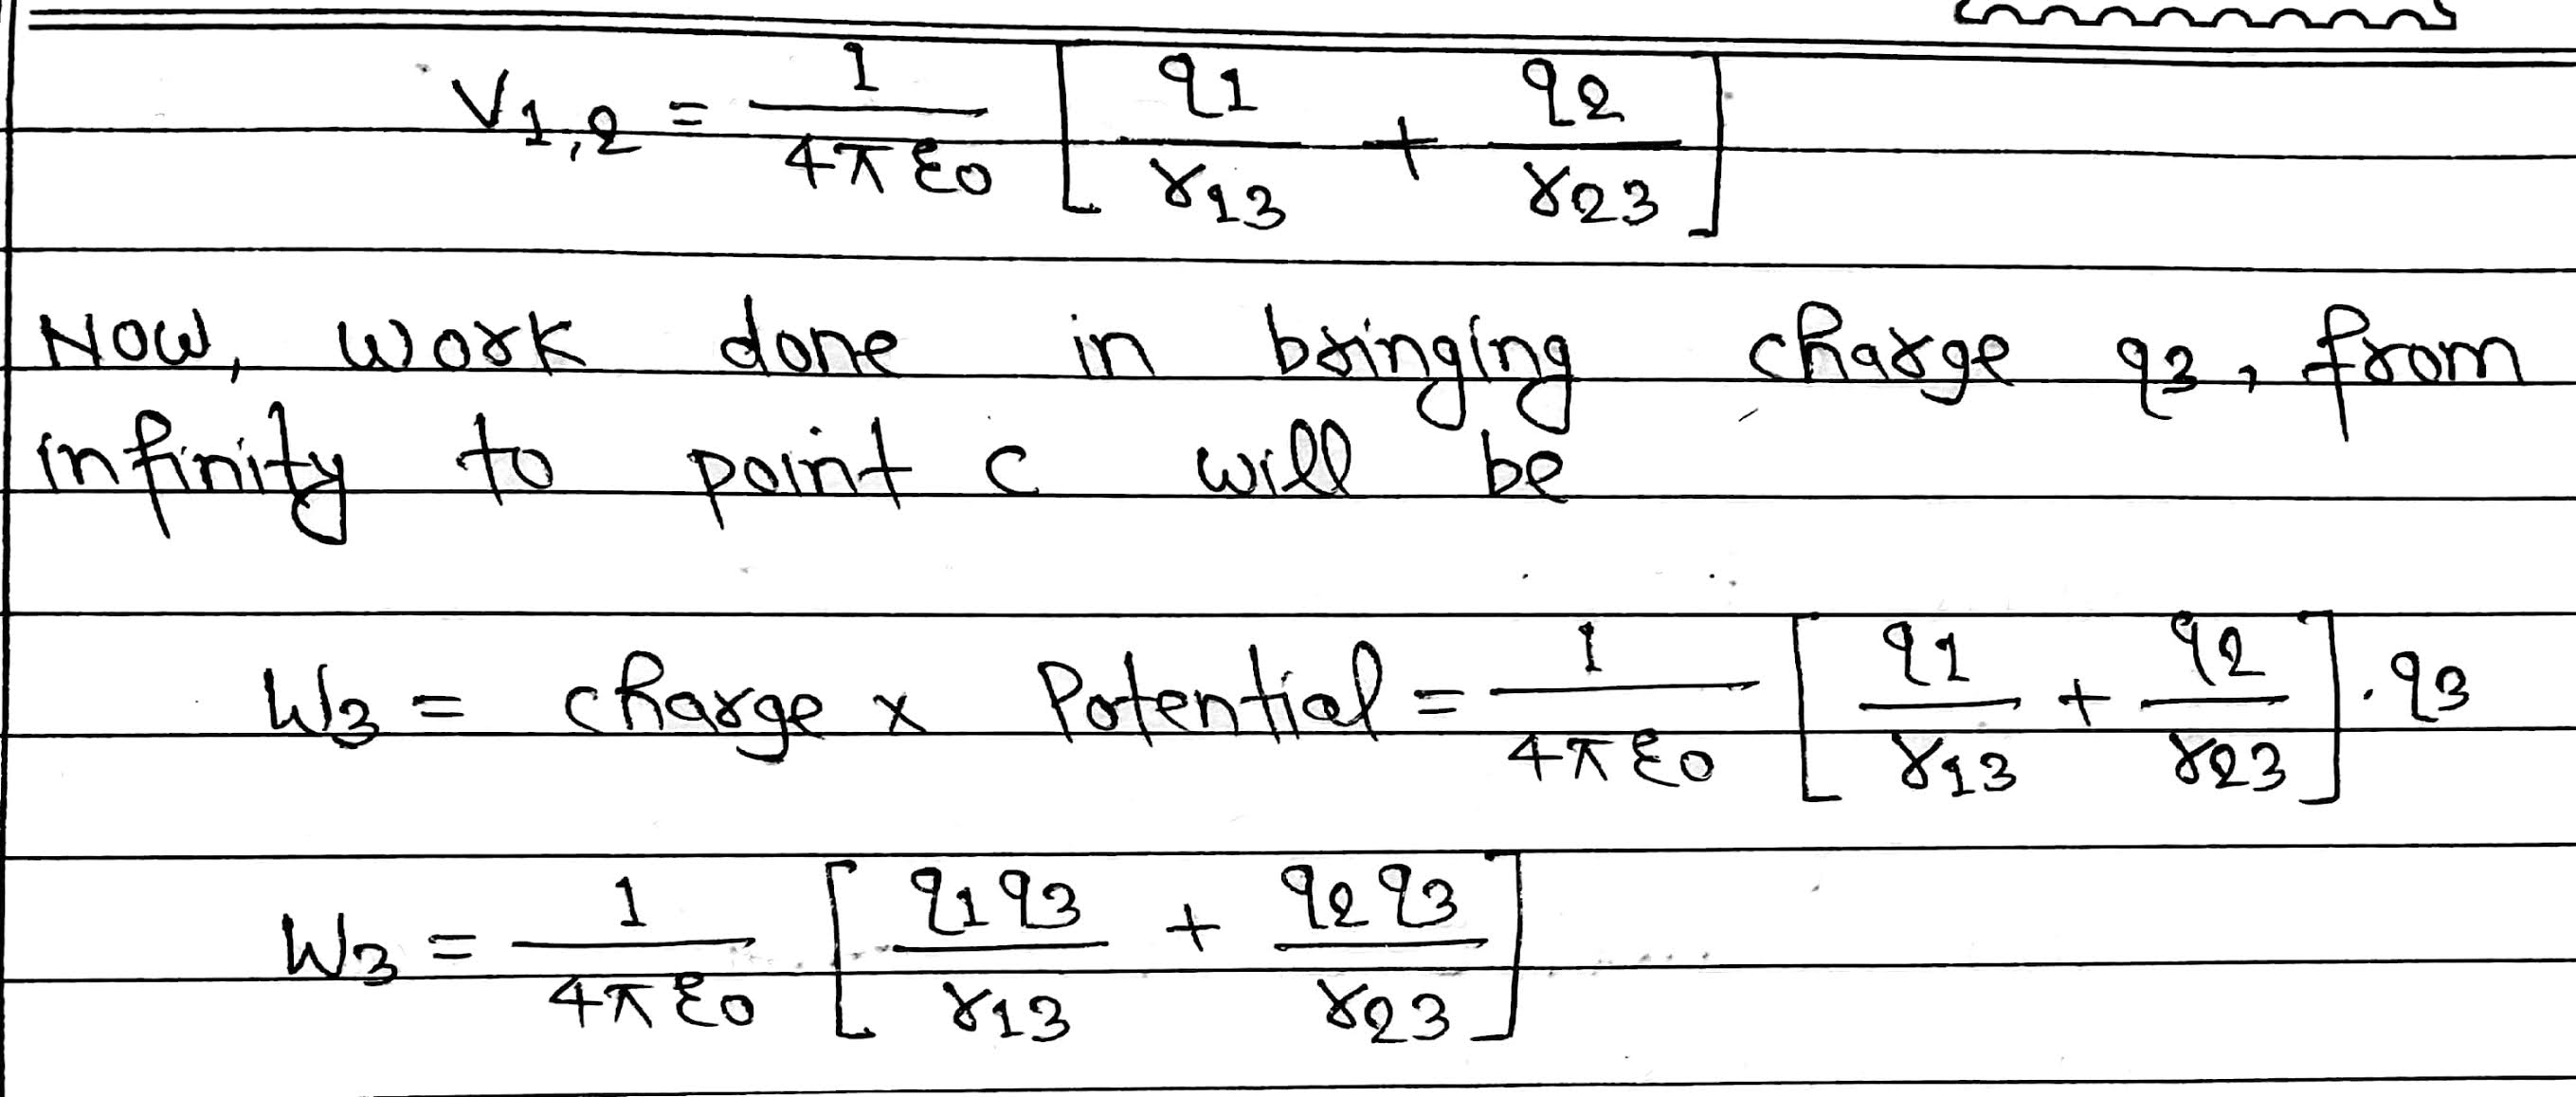 V1,2 = 1/4πε0 [q1/r13 + q2/r23]
Now, work done in bringing charge q3, from
infinity to point c will be
W3 = charge x Potential = 1/4πε0 [q1/r13 + q2/r23].q3
W3 = 1/4πε0 [q1q3/r13 + q2q3/r23]